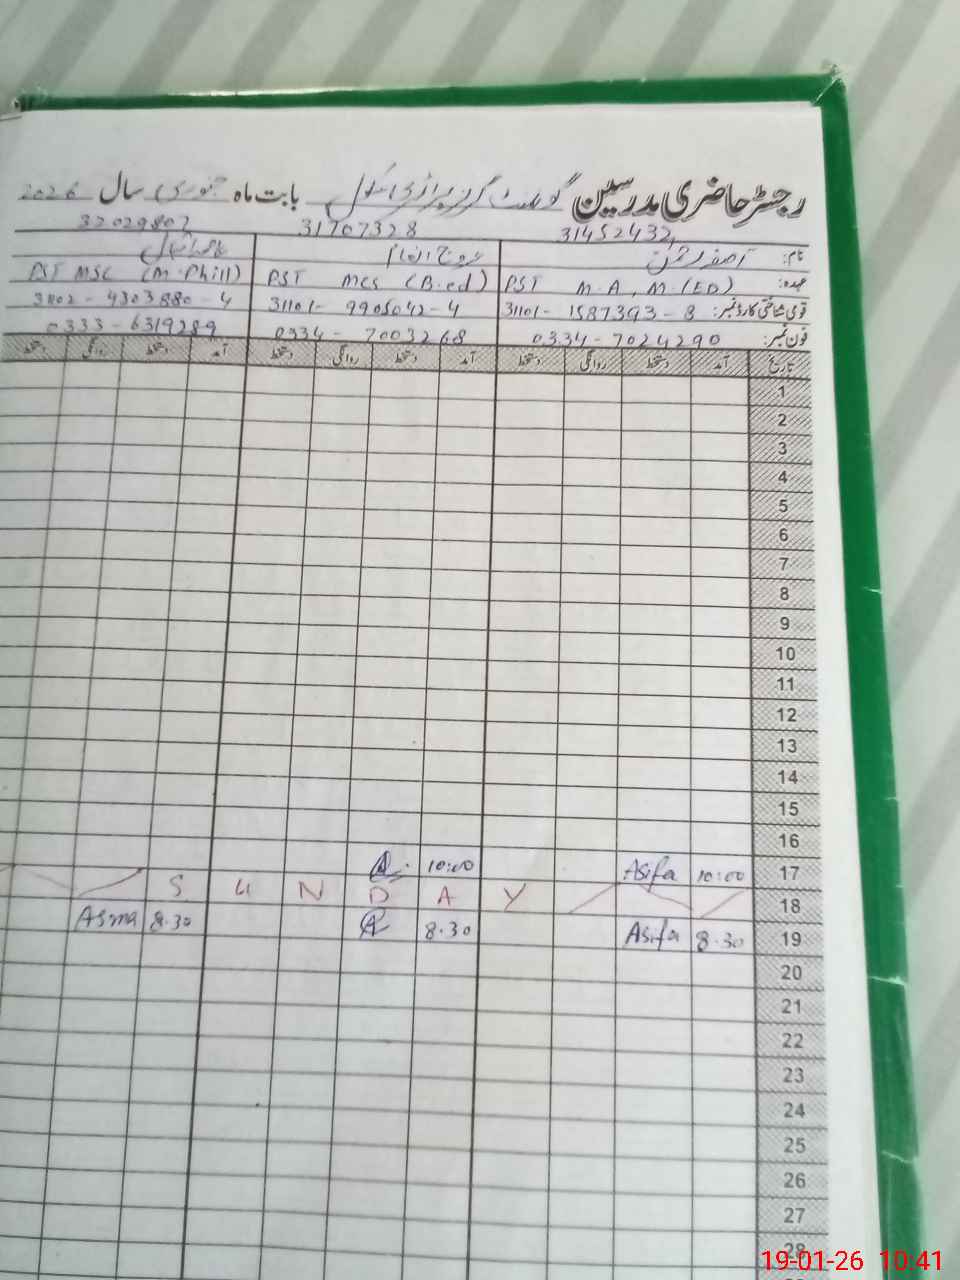 رجسٹر حاضری مدرسین گورنمنٹ گرلز پرائمری سکول بابت ماہ جنوری سال 2026
31452432 31707328 32029807
نام: آصفہ رحمٰن عروج انعام
عہدہ: PST M.A, M.(ED) PST MCS (B.ed) PST MSC (M.Phill)
قومی شناختی کارڈ نمبر: 31101- 1587393-8 31101- 9905042-4 31102-4303880-4
فون نمبر: 0334-7024290 0334-7003268 0333-6319289
تاریخ آمد دستخط روانگی دستخط آمد دستخط روانگی دستخط آمد دستخط روانگی دستخط
1
2
3
4
5
6
7
8
9
10
11
12
13
14
15
16
17 10:00 Asifa 10:00
18 S U N D A Y
19 8.30 Asifa 8.30 8.30 Asma
20
21
22
23
24
25
26
27
28
19-01-26 10:41